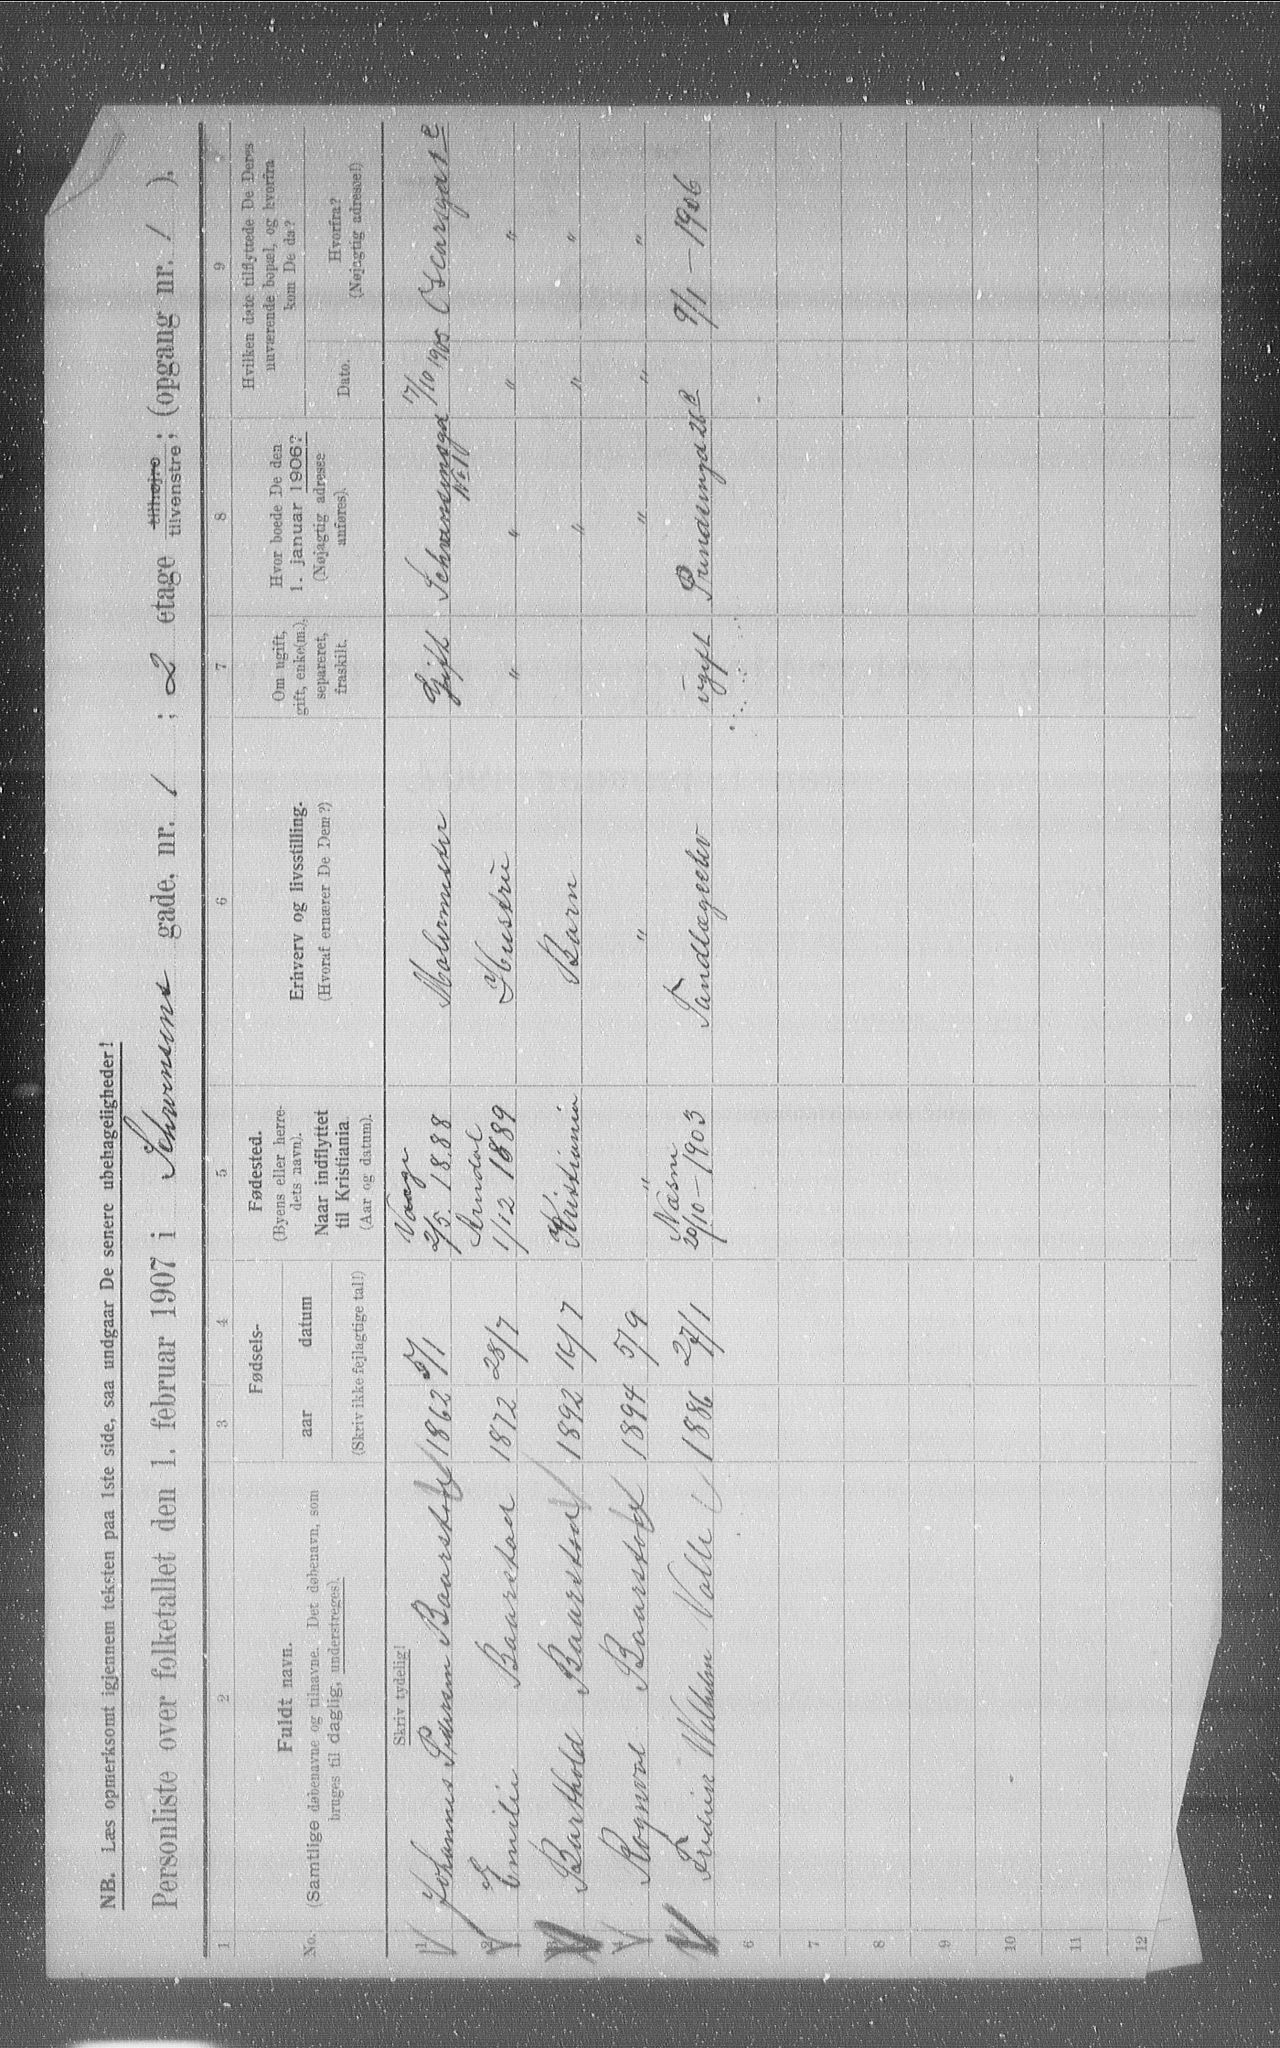 NB. Læs opmerksomt igjennem teksten paa 1ste side, saa undgaar De senere ubehageligheder!
Personliste over folketallet den 1. februar 1907 i Schwensens gade, nr. 1 ; 2 etage tilhøjre tilvenstre; (opgang nr. 1 ).
1 2 3 4 5 6 7 8 9
No.
Fuldt navn.
(Samtlige døbenavne og tilnavne. Det døbenavn, som
bruges til daglig, understreges).
Fødsels-
aar datum
(Skriv ikke fejlagtige tal!)
Fødested.
(Byens eller herre-
dets navn).
Naar indflyttet
til Kristiania.
(Aar og datum).
Erhverv og livsstilling.
(Hvoraf ernærer De Dem?)
Om ugift,
gift, enke(m.),
separeret,
fraskilt.
Hvor boede De den
1. januar 1906?
(Nøjagtig adresse
anføres).
Hvilken date tilflyttede De Deres
nuværende bopæl, og hvorfra
kom De da?
Dato.
Hvorfra?
(Nøjagtig adresse!)
Skriv tydelig!
1 Johannes Baarstad 1862 5/1 Vaage 2/5. 1888 Malermester Gift No 1 17/10 1905 Oscarsgd
2 Emilie Baarstad 1872 28/7 Arndal 1/12 1889 Hustru " " " "
3 Barthold Baarstad 1892 16/7 Kristiania Barn " " "
4 Rognval Baarstad 1894 5/9 " " " " "
5 Fredrik Wilhelm Valle 1886 27/1 Næsne 20/10-1903 Tandlægeelev ugift 26 B 9/1-1906
6
7
8
9
10
11
12